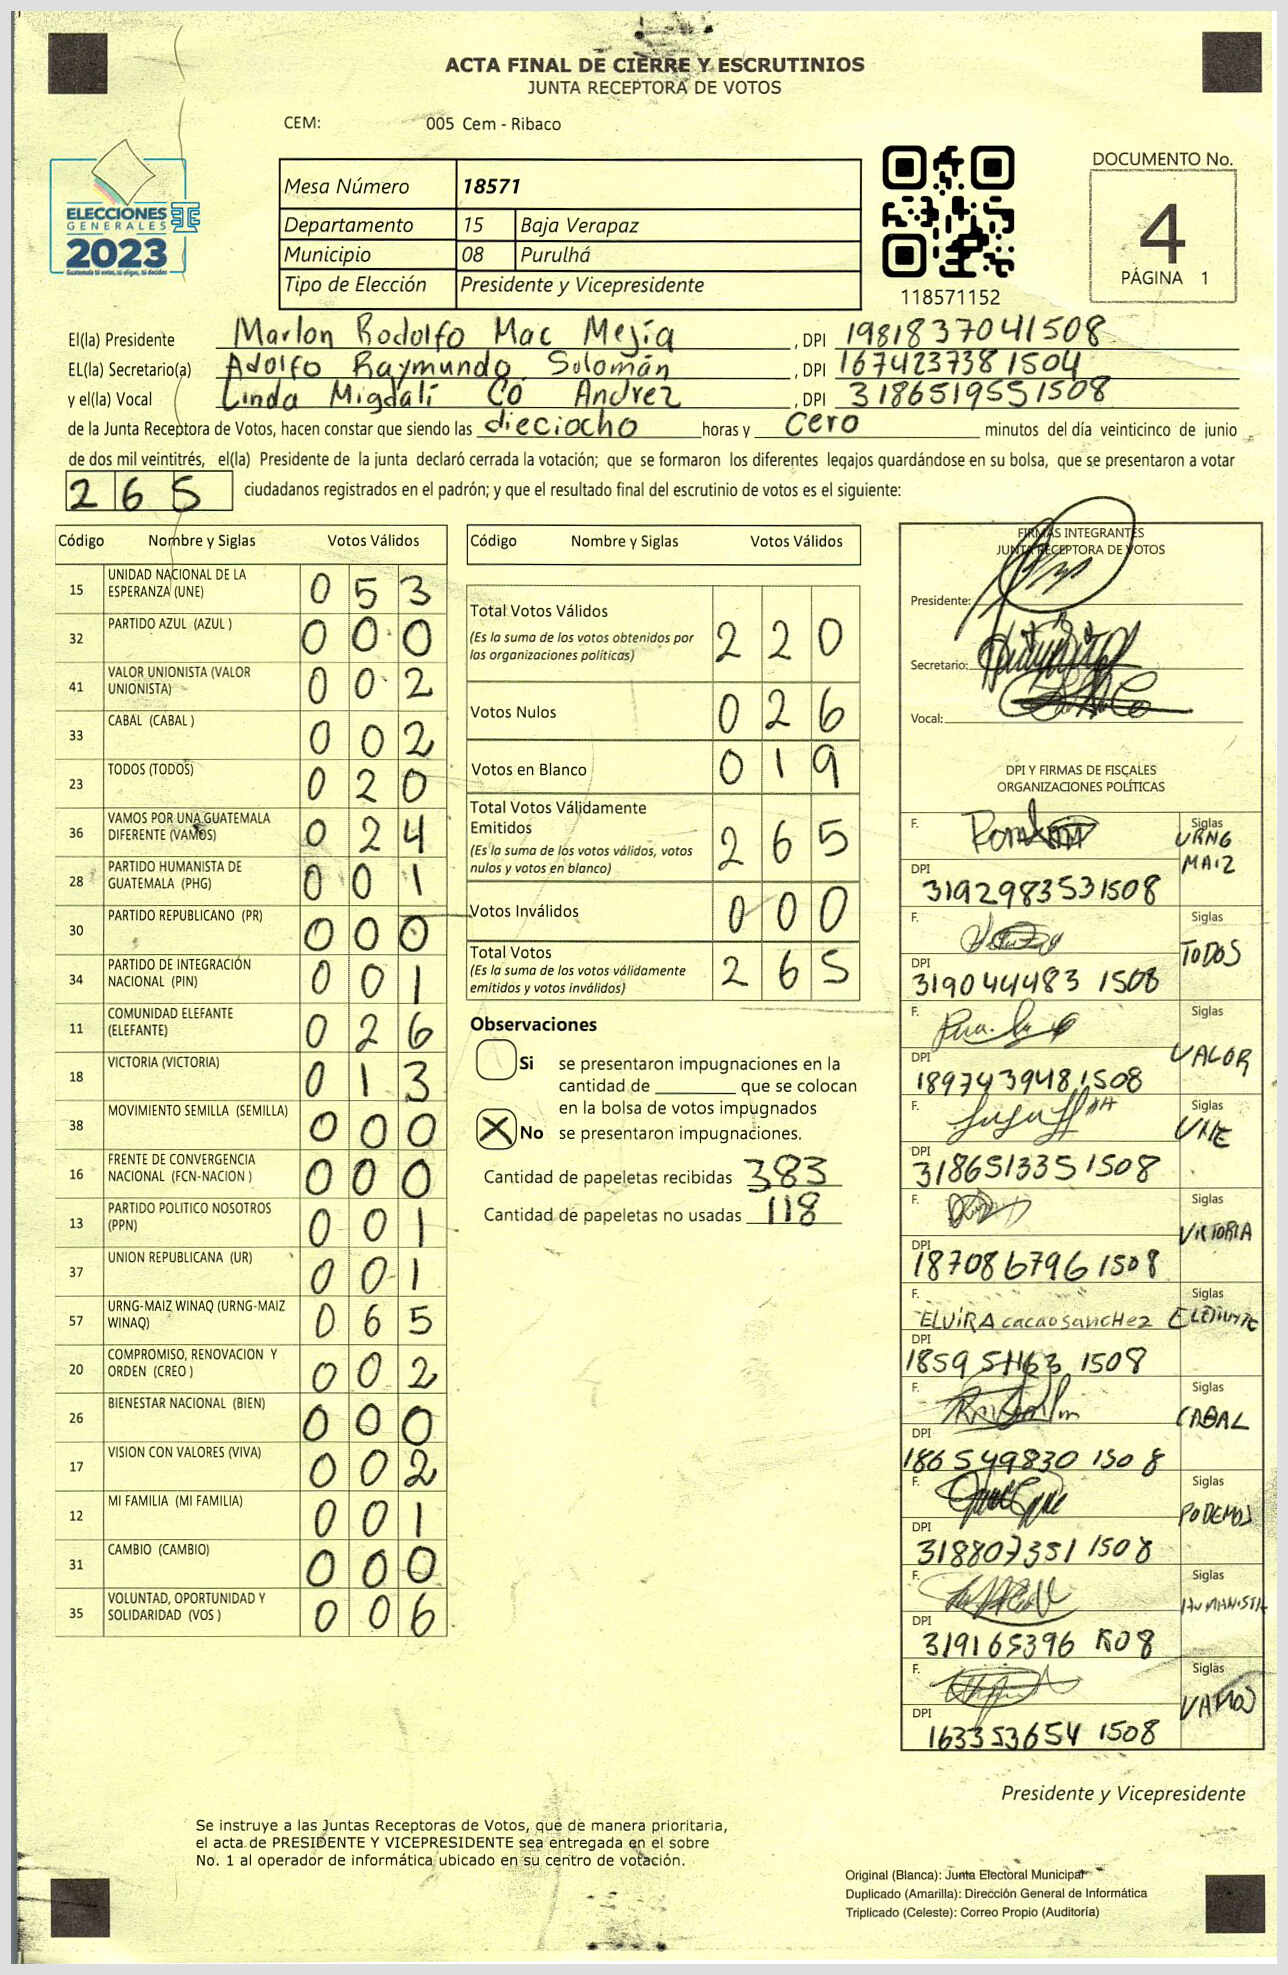 ACTA FINAL DE CIERRE Y ESCRUTINIOS
JUNTA RECEPTORA DE VOTOS
CEM: 005 Cem - Ribaco
ELECCIONES
GENERALES
2023
Guatemala tú votas, tú eliges, tú decides
Mesa Número 18571
Departamento 15 Baja Verapaz
Municipio 08 Purulhá
Tipo de Elección Presidente y Vicepresidente
118571152
DOCUMENTO No.
4
PÁGINA 1
El(la) Presidente Marlon Rodolfo Mac Mejía , DPI 1981837041508
EL(la) Secretario(a) Adolfo Raymundo Solomán , DPI 1674237381504
y el(la) Vocal Linda Migdalí Co Andrez , DPI 3186519551508
de la Junta Receptora de Votos, hacen constar que siendo las dieciocho horas y cero minutos del día veinticinco de junio
de dos mil veintitrés, el(la) Presidente de la junta declaró cerrada la votación; que se formaron los diferentes legajos guardándose en su bolsa, que se presentaron a votar
265 ciudadanos registrados en el padrón; y que el resultado final del escrutinio de votos es el siguiente:
Código Nombre y Siglas Votos Válidos
15 UNIDAD NACIONAL DE LA ESPERANZA (UNE) 053
32 PARTIDO AZUL (AZUL ) 000
41 VALOR UNIONISTA (VALOR UNIONISTA) 002
33 CABAL (CABAL ) 002
23 TODOS (TODOS) 020
36 VAMOS POR UNA GUATEMALA DIFERENTE (VAMOS) 024
28 PARTIDO HUMANISTA DE GUATEMALA (PHG) 001
30 PARTIDO REPUBLICANO (PR) 000
34 PARTIDO DE INTEGRACIÓN NACIONAL (PIN) 001
11 COMUNIDAD ELEFANTE (ELEFANTE) 026
18 VICTORIA (VICTORIA) 013
38 MOVIMIENTO SEMILLA (SEMILLA) 000
16 FRENTE DE CONVERGENCIA NACIONAL (FCN-NACION ) 000
13 PARTIDO POLITICO NOSOTROS (PPN) 001
37 UNION REPUBLICANA (UR) 001
57 URNG-MAIZ WINAQ (URNG-MAIZ WINAQ) 065
20 COMPROMISO, RENOVACION Y ORDEN (CREO ) 002
26 BIENESTAR NACIONAL (BIEN) 000
17 VISION CON VALORES (VIVA) 002
12 MI FAMILIA (MI FAMILIA) 001
31 CAMBIO (CAMBIO) 000
35 VOLUNTAD, OPORTUNIDAD Y SOLIDARIDAD (VOS ) 006
Código Nombre y Siglas Votos Válidos
Total Votos Válidos 220
(Es la suma de los votos obtenidos por
las organizaciones políticas)
Votos Nulos 026
Votos en Blanco 019
Total Votos Válidamente
Emitidos 265
(Es la suma de los votos válidos, votos
nulos y votos en blanco)
Votos Inválidos 000
Total Votos 265
(Es la suma de los votos válidamente
emitidos y votos inválidos)
Observaciones
Si se presentaron impugnaciones en la
cantidad de ________ que se colocan
en la bolsa de votos impugnados
X No se presentaron impugnaciones.
Cantidad de papeletas recibidas 383
Cantidad de papeletas no usadas 118
FIRMAS INTEGRANTES
JUNTA RECEPTORA DE VOTOS
Presidente:
Secretario:
Vocal:
DPI Y FIRMAS DE FISCALES
ORGANIZACIONES POLÍTICAS
F. Siglas URNG MAIZ
DPI 3192983531508
F. Siglas TODOS
DPI 319044483 1508
F. Siglas VALOR
DPI 1897439481508
F. Siglas UNE
DPI 3186513351508
F. Siglas VICTORIA
DPI 187086796 1508
F. ELVIRA cacao sancHez Siglas
DPI 1508
F. Siglas CABAL
DPI 186549830 1508
F. Siglas PODEMOS
DPI 318807351 1508
F. Siglas HUMANISTA
DPI 319165396 1508
F. Siglas VAMOS
DPI 163353654 1508
Presidente y Vicepresidente
Se instruye a las Juntas Receptoras de Votos, que de manera prioritaria,
el acta de PRESIDENTE Y VICEPRESIDENTE sea entregada en el sobre
No. 1 al operador de informática ubicado en su centro de votación.
Original (Blanca): Junta Electoral Municipal
Duplicado (Amarilla): Dirección General de Informática
Triplicado (Celeste): Correo Propio (Auditoría)